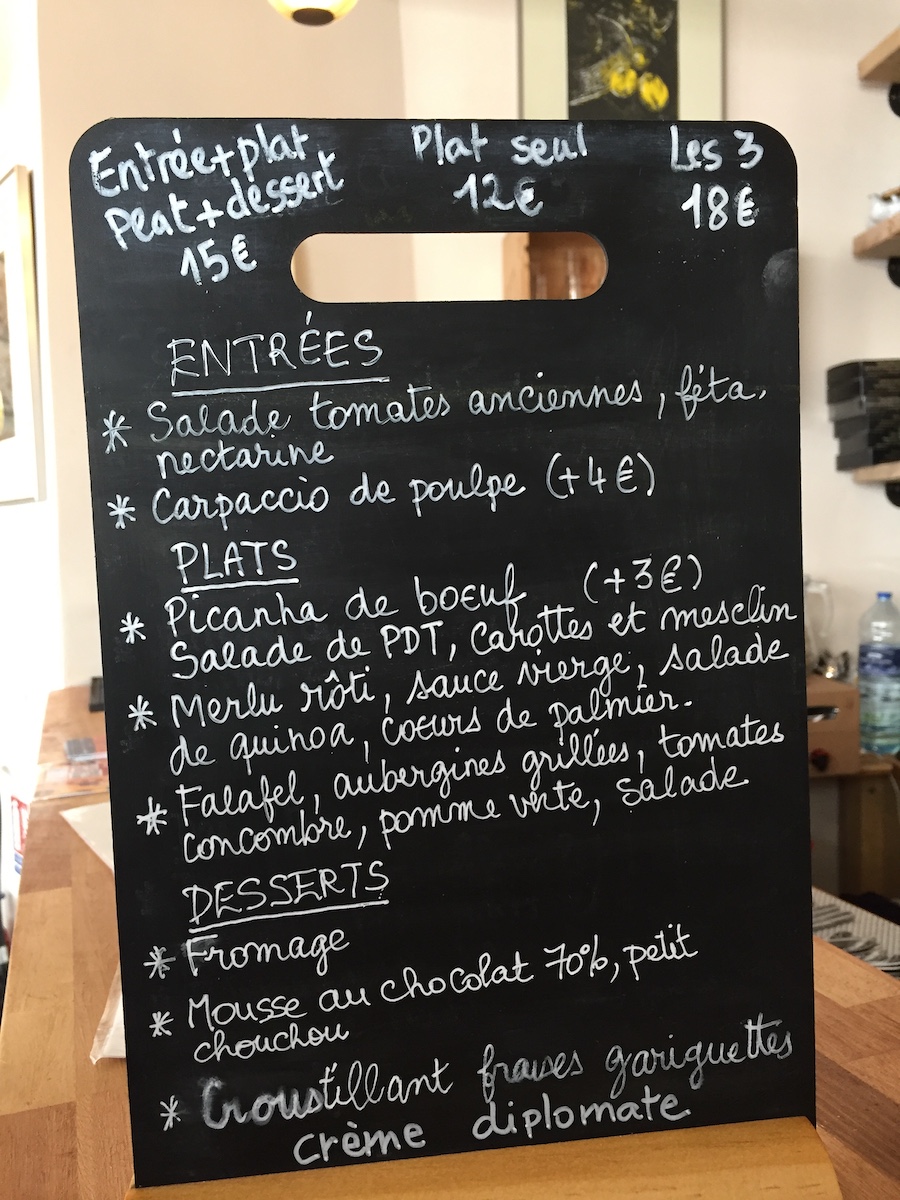 Entrée+plat
Plat+dessert
15€
Plat seul
12€
Les 3
18€
ENTRÉES
* Salade tomates anciennes, féta,
nectarine
* Carpaccio de poulpe (+4€)
PLATS
* Picanha de boeuf (+3€)
Salade de PDT, Carottes et mesclin
* Merlu rôti, sauce vierge, salade
de quinoa, coeurs de palmier.
* Falafel, aubergines grillées, tomates
concombre, pomme verte, salade
DESSERTS
* Fromage
* Mousse au chocolat 70%, petit
chouchou
* Croustillant fraises gariguettes
crème diplomate